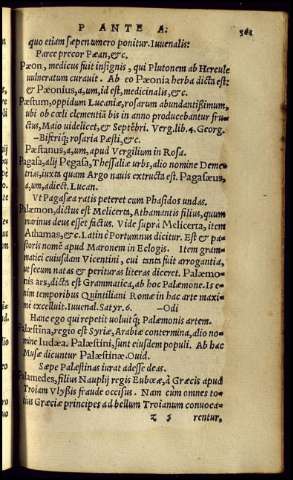 P ANTE A. 361
quo etiam sæpenumero ponitur. Iuuenalis:
Parce precor Pæan, &c.
Pæon, medicus fuit insignis, qui Plutonem ab Hercule
vulneratum curauit. Ab eo Pæonia herba dicta est:
& Pæonius, a, um, id est, medicinalis, &c.
Pæstum, oppidum Lucaniæ, rosarum abundantissimum,
ubi ob cœli clementiā bis in anno producebantur fru-
ctus, Maio videlicet, & Septēbri. Verg. lib. 4. Georg.
—Biferiq; rosaria Pæsti, &c.
Pæstanus, a, um, apud Vergilium in Rosa.
Pagasa, alij Pegasa, Thessaliæ urbs, alio nomine Deme-
trias, iuxta quam Argo nauis extructa est. Pagasæus,
a, um, adiect. Lucan.
Vt Pagasæa ratis peteret cum Phasidos undas.
Palæmon, dictus est Melicerta, Athamantis filius, quum
marinus deus esset factus. Vide supra Melicerta, item
Athamas, &c. Latinè Portumnus dicitur. Est & pa-
storis nomē apud Maronem in Eclogis. Item gram-
matici cuiusdam Vicentini, cui tanta fuit arrogantia,
ut secum natas & perituras literas diceret. Palæmo-
nis ars, dicta est Grammatica, ab hoc Palæmone. Is e-
nim temporibus Quintiliani Romæ in hac arte maxi-
mè excelluit. Iuuenal. Satyr. 6. —Odi
Hanc ego qui repetit uoluitq; Palæmonis artem.
Palæstina, regio est Syriæ, Arabiæ contermina, alio no-
mine Iudæa. Palæstini, sunt eiusdem populi. Ab hac
Musæ dicuntur Palæstinæ. Ouid.
Sæpe Palæstinas iurat adesse deas.
Palamedes, filius Nauplij regis Eubœæ, à Græcis apud
Troiam Vlyssis fraude occisus. Nam cum omnes to-
tius Græciæ principes ad bellum Troianum conuoca-
z 5 rentur,